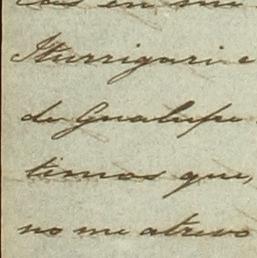 en mi
Iturrigari e
de Gualupe
timos que,
no me atrevo